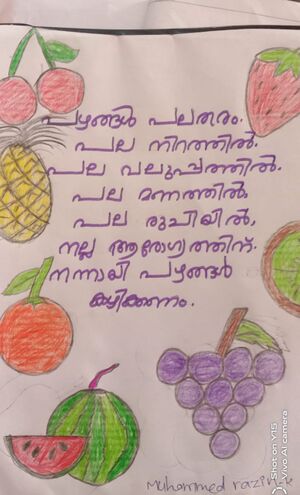 പഴങ്ങൾ പലതരം.
പല നിറത്തിൽ.
പല വലുപ്പത്തിൽ.
പല മണത്തിൽ
പല രുചിയിൽ,
നല്ല ആരോഗ്യത്തിന്.
നന്നായി പഴങ്ങൾ
കഴിക്കണം.
Muhammed razin.k
Shot on Y15
Vivo AI camera